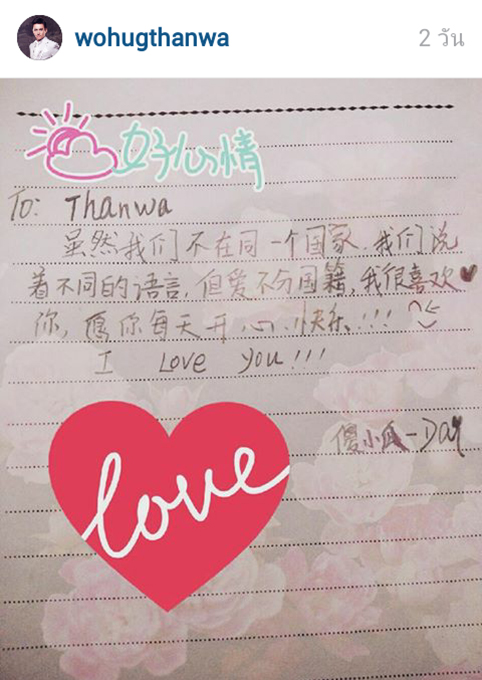 wohugthanwa
2 วัน
好心情
To: Thanwa
虽然我们不在同一个国家,我们说
着不同的语言,但爱不分国籍,我很喜欢
你,愿你每天开心.快乐!!!
I Love you!!!
傻小瓜-Day
love